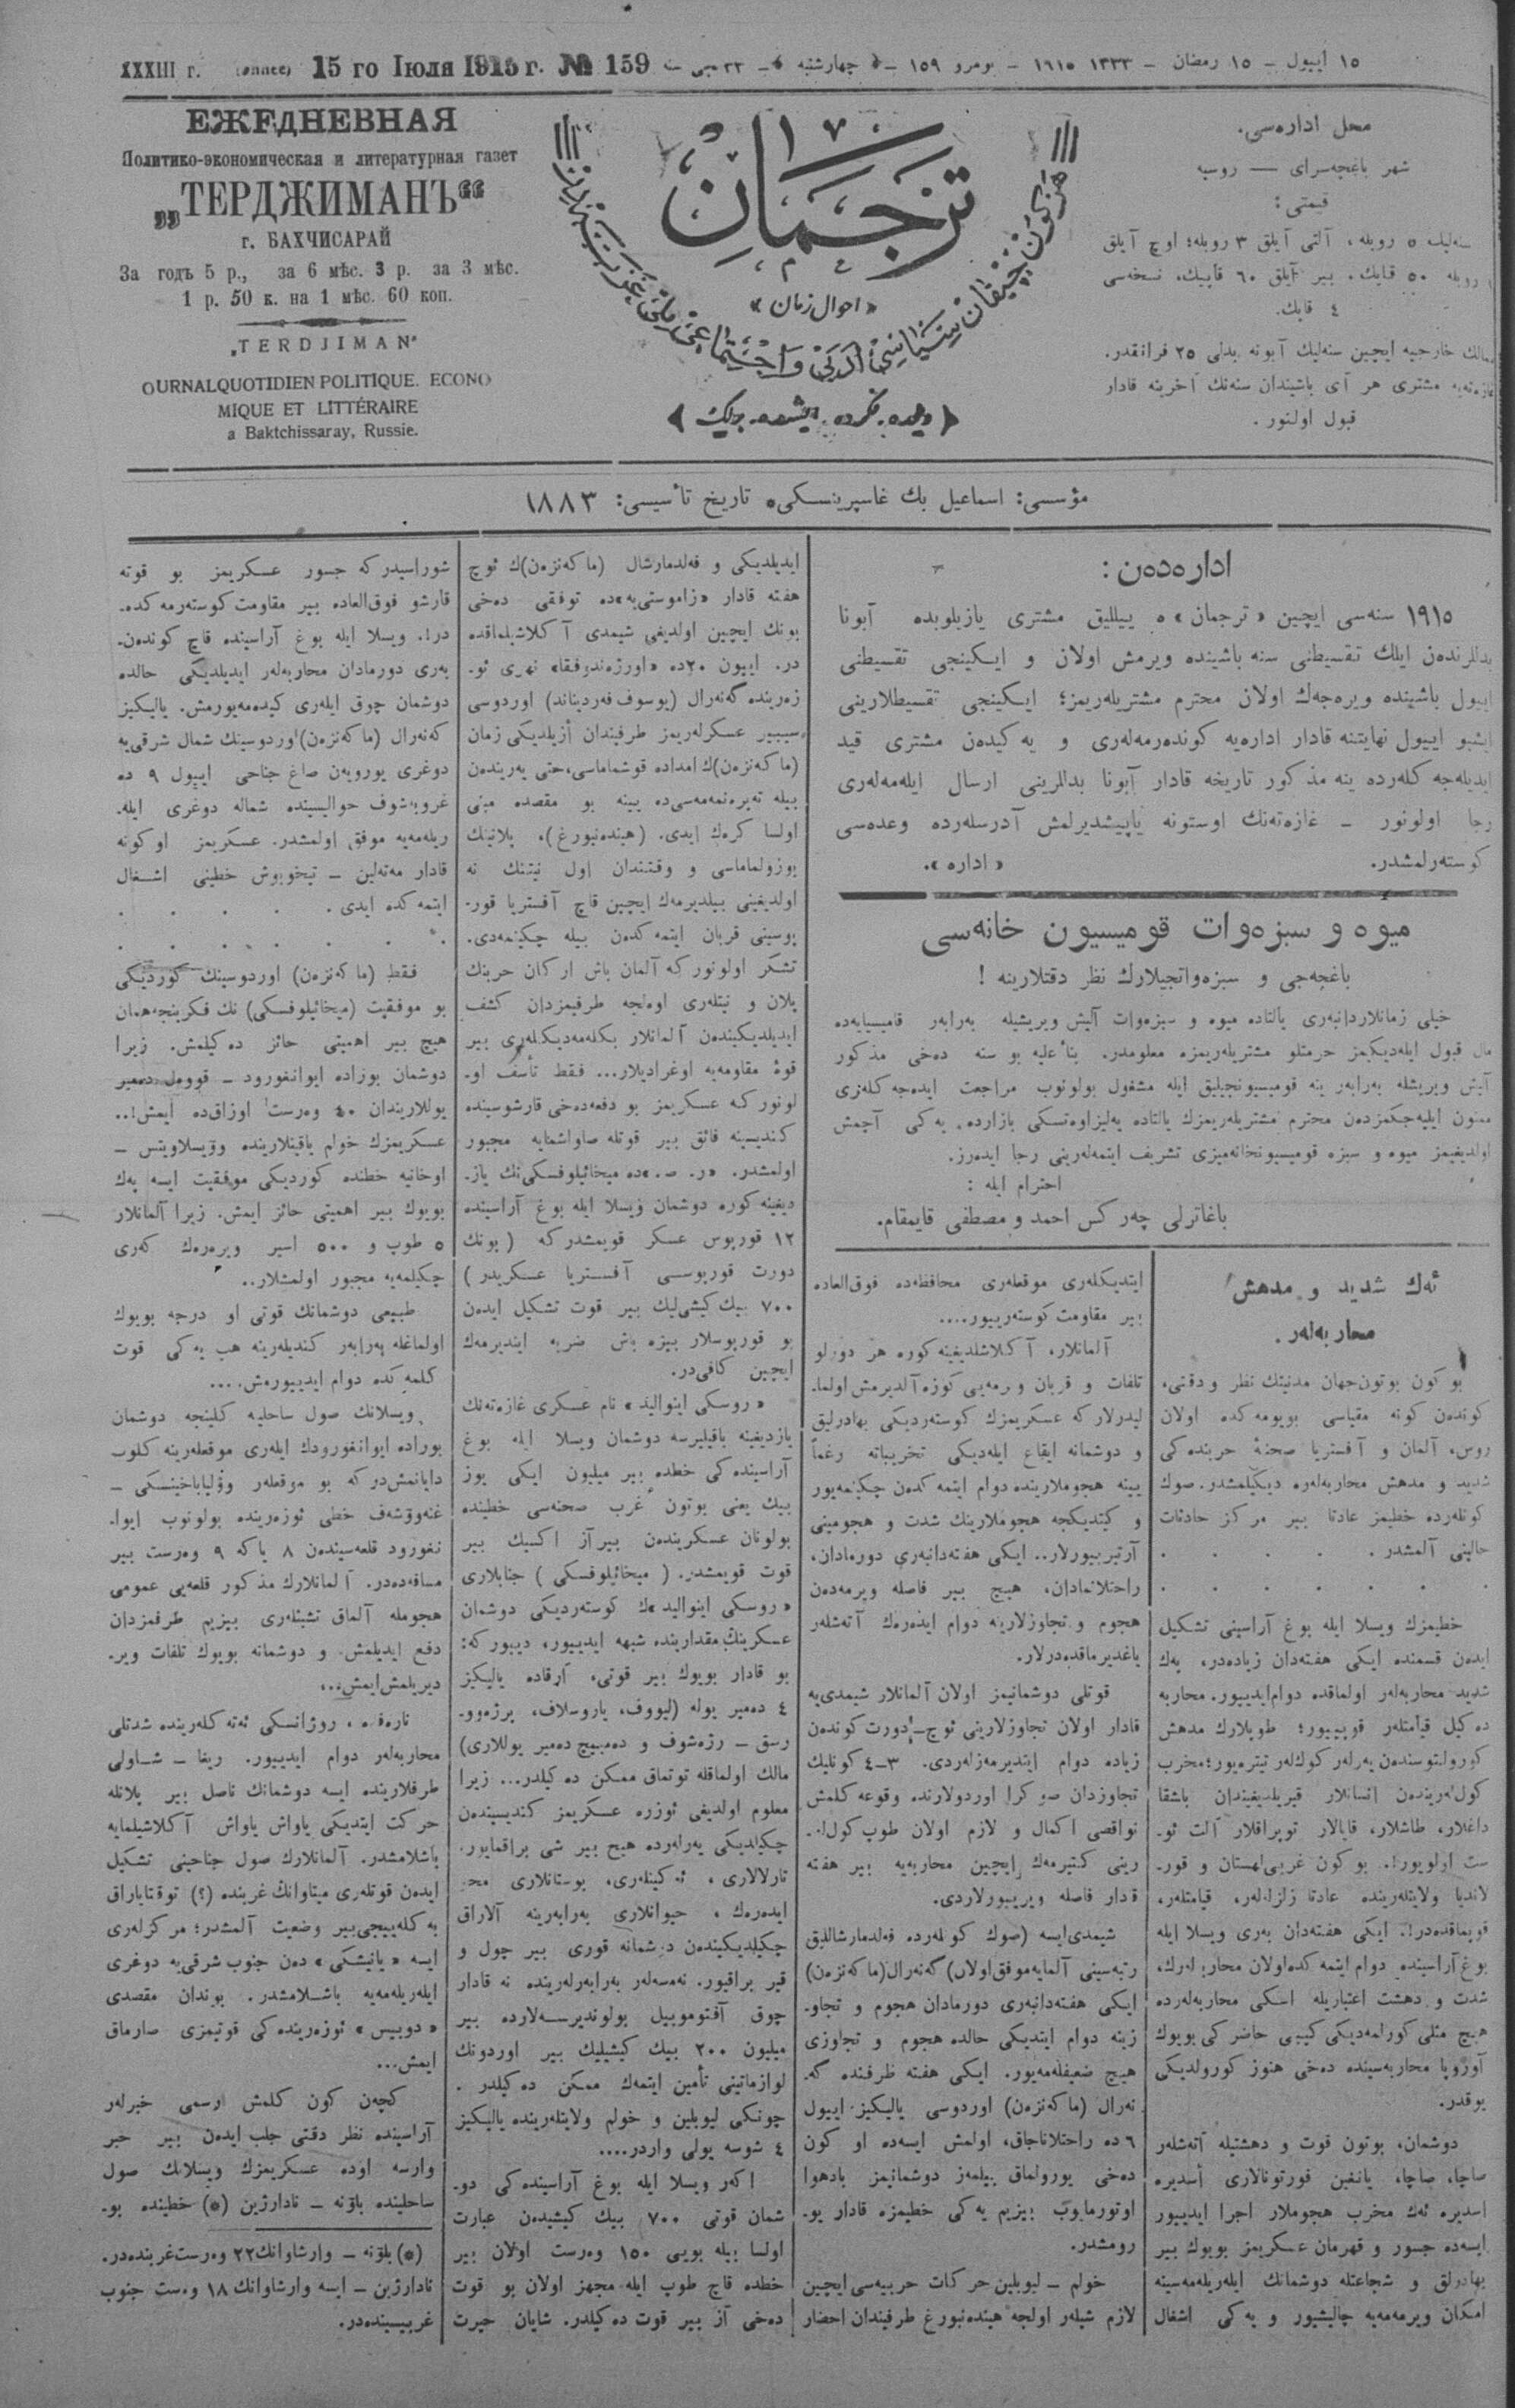 XXXIII г. (année) 15 го Іюля 1915 г. № 159
١٥ اییول – ١٥ رمضان – ١٣٣٣ ١٩١٥ – نومرو ١٥٩ – چهارشنبه – ٣٣ جی سنه
ЕЖЕДНЕВНАЯ
Политико-экономическая и литературная газет
„ТЕРДЖИМАНЪ“
г. БАХЧИСАРАЙ
За годъ 5 р., за 6 мѣс. 3 р. за 3 мѣс.
1 р. 50 к. на 1 мѣс. 60 коп.
„TERDJIMAN“
OURNALQUOTIDIEN POLITIQUE. ECONO
MIQUE ET LITTÉRAIRE
a Baktchissaray, Russie.
ترجمان
«احوال زمان»
هر کون چیقان سیاسی، ادبی و اجتماعی ملی غزته‌در
«دیلده، فکرده، ایشده، برلیك»
محل اداره‌سی.
شهر باغچه‌سرای — روسیه
قیمتی:
سنه‌لیك ٥ روبله، آلتی آیلق ٣ روبله؛ اوچ آیلق
١ روبله ٥٠ قاپك. بیر آیلق ٦٠ قاپیك، نسخه‌سی
٤ قاپك.
ممالك خارجیه ایچین سنه‌لیك آبونه بدلی ٢٥ فرانقدر.
غازه‌ته‌یه مشتری هر آی باشیندان سنه‌نك آخرینه قادار
قبول اولنور.
مؤسسی: اسماعیل بك غاسپرینسکی ٥ تاریخ تأسیسی: ١٨٨٣
اداره‌دن:
١٩١٥ سنه‌سی ایچین «ترجمان» ه ییللیق مشتری یازیلوبده آبونا
بدللرندن ایلك تقسیطنی سنه باشینده ویرمش اولان و ایکینجی تقسیطنی
اییول باشینده ویره‌جه‌ك اولان محترم مشتریله‌ریمز؛ ایکینجی تقسیطلارینی
ایشبو اییول نهایتنه قادار اداره‌یه کونده‌رمه‌له‌ری و یه‌کیدن مشتری قید
ایدیله‌جه‌کله‌رده ینه مذکور تاریخه قادار آبونا بدللرینی ارسال ایله‌مه‌له‌ری
رجا اولونور – غازه‌ته‌نك اوستونه یاپیشدیرلمش آدرسله‌رده وعده‌سی
کوسته‌رلمشدر. «اداره».
میوه و سبزه‌وات قومیسیون خانه‌سی
باغچه‌جی و سبزه‌واتجیلارك نظر دقتلارینه !
خیلی زمانلاردانبه‌ری یالتاده میوه و سبزه‌وات آلیش ویریشیله به‌رابه‌ر قامیسیایه‌ده
مال قبول ایله‌دیکیمز حرمتلو مشتریله‌ریمزه معلومدر. بناءً علیه بو سنه ده‌خی مذکور
آلیش ویریشله به‌رابه‌ر ینه قومیسیونجیلیق ایله مشغول بولونوب مراجعت ایده‌جه‌کله‌ری
ممنون ایلیه‌جکمزدن محترم مشتریله‌ریمزك یالتاده یه‌لیزاوه‌تسکی بازارده، یه‌کی آچمش
اولدیغیمز میوه و سبزه قومیسیونخانه‌میزی تشریف ایتمه‌له‌رینی رجا ایده‌رز.
احترام ایله :
باغاترلی چه‌رکس احمد و مصطفی قایمقام.
ئه‌ك شدید و مدهش
محاربه‌له‌ر.
بو کون بوتون جهان مدنیتك نظر و دقتی،
کوندن کونه مقیاسی بویومه‌کده اولان
روس، آلمان و آفستریا صحنهٔ حربنده‌کی
شدید و مدهش محاربه‌له‌ره دیکیلمشدر. صوك
کونله‌رده خطیمز عادتا بیر مرکز حادثات
حالینی آلمشدر . . . . .
خطیمزك ویسلا ایله بوغ آراسینی تشکیل
ایدن قسمنده ایکی هفته‌دان زیاده‌در، په‌ك
شدید محاربه‌له‌ر اولماقده دوام ایدییور. محاربه
ده‌کیل قیامتله‌ر قوپییور؛ طوپلارك مدهش
کورولتوسندن یه‌رله‌ر کوك‌له‌ر تیتره‌یور؛ مخرب
کوله‌له‌ریندن انسانلار قیریلدیغیندان باشقا
داغلار، طاشلار، قایالار توپراقلار آلت ئو-
ست اولویور!. بو کون غربی لهستان و قور-
لاندیا ولایتله‌رینده عادتا زلزله‌له‌ر، قیامتله‌ر،
قوپماقده‌در!. ایکی هفته‌دان به‌ری ویسلا ایله
بوغ آراسینده دوام ایتمه‌کده اولان محاربه‌له‌رك،
شدت و دهشت اعتباریله اسکی محاربه‌له‌رده
هیچ مثلی کورلمه‌دیکی کیبی حاضرکی بویوك
آوروپا محاربه‌سینده ده‌خی هنوز کورولدیکی
یوقدر.
دوشمان، بوتون قوت و دهشتیله آته‌شله‌ر
صاچا، صاچا، یانغین قورتونالاری أسدیره
اسدیره ئه‌ك مخرب هجوملار اجرا ایدییور
ایسه‌ده جسور و قهرمان عسکریمز بویوك بیر
بهادرلق و شجاعتله دوشمانك ایله‌ریله‌مه‌سینه
امکان ویرمه‌مه‌یه چالیشیور و یه‌کی اشغال
ایتدیکله‌ری موقعله‌ری محافظه‌ده فوق‌العاده
بیر مقاومت کوسته‌رییور....
آلمانلار، آکلاشلدیغینه کوره هر دورلو
تلفات و قربان ویرمه‌یی کوزه آلدیرمش اولما-
لیدرلارکه عسکریمزك کوسته‌ردیکی بهادرلیق
و دوشمانه ایقاع ایله‌دیکی تخریباته رغماً
یینه هجوملارینده دوام ایتمه‌کدن چکینمه‌یور
و کیتدیکجه هجوملارینك شدت و هجومینی
آرتیرییورلار.. ایکی هفته‌دانبه‌ری دورمادان،
راحتلانمادان، هیچ بیر فاصله ویرمه‌دن
هجوم و تجاوزلارینه دوام ایده‌رك آته‌شله‌ر
یاغدیرماقده‌درلار.
قوتلی دوشمانیمز اولان آلمانلار شیمدی‌یه
قادار اولان تجاوزلارینی ئوچ – دورت کوندن
زیاده دوام ایتدیرمه‌زله‌ردی. ٣–٤ کونلیك
تجاوزدان صوکرا اوردولارنده وقوعه کلمش
نواقصی اکمال و لازم اولان طوپ کوله‌-
رینی کتیرمه‌ك ایچین محاربه‌یه بیر هفته
قدار فاصله ویرییورلاردی.
شیمدی ایسه (صوك کونله‌رده فه‌لدمارشاللیق
رتبه‌سینی آلمایه موفق اولان) گه‌نه‌رال (ماکه‌نزه‌ن)
ایکی هفته‌دانبه‌ری دورمادان هجوم و تجاو-
زینه دوام ایتدیکی حالده هجوم و تجاوزی
هیچ ضعیفله‌مه‌یور. ایکی هفته ظرفنده گه-
نه‌رال (ماکه‌نزه‌ن) اوردوسی یالیکیز اییول
٦ ده راحتلاناجاق، اولمش ایسه‌ده او کون
ده‌خی یورولماق بیلمه‌ز دوشمانیمز بادهوا
اوتورمایوب بیزیم یه‌کی خطیمزه قادار یو-
رومشدر.
خولم – لیوبلین حرکات حربیه‌سی ایچین
لازم شیله‌ر اولجه هینده‌نبورغ طرفیندان احضار
ایدیلدیکی و فه‌لدمارشال (ماکه‌نزه‌ن)ك ئوچ
هفته قادار «زاموستی‌یه»ده توفقی ده‌خی
بونك ایچین اولدیغی شیمدی آکلاشیلماقده
در. اییون ٢٠ده «اورژه‌ندوفقا» نهری ئو-
زه‌رینده گه‌نه‌رال (یوسوف فه‌ردیناند) اوردوسی
سیبیر عسکرله‌ریمز طرفیندان أزیلدیکی زمان
(ماکه‌نزه‌ن)ك امداده قوشماماسی، حتی یه‌ریندن
بیله ته‌بره‌نمه‌مه‌سی‌ده یینه بو مقصده مبنی
اولسا کره‌ك ایدی. (هینده‌نبورغ)، پلانینك
بوزولماماسی و وقتندان اول نیتنك نه
اولدیغینی بیلدیرمه‌ك ایچین قاچ آفستریا قور-
پوسینی قربان ایتمه‌کدن بیله چکینمه‌دی.
تشکر اولونورکه آلمان باش ارکان حربنك
پلان و نیتله‌ری اوه‌لجه طرفیمزدان کشف
ایدیلدیکیندن آلمانلار بکله‌مه‌دیکله‌ری بیر
قوهٔ مقاومه‌یه اوغرادیلار... فقط تأسف او-
لونورکه عسکریمز بو دفعه‌ده‌خی قارشوسینده
کندیسینه فائق بیر قوتله صاواشمایه مجبور
اولمشدر. «ر. ص.»ده میخائیلوفسکی‌نك یاز-
دیغینه کوره دوشمان ویسلا ایله بوغ آراسینده
١٢ قورپوس عسکر قویمشدرکه (بونك
دورت قورپوسی آفستریا عسکریدر)
٧٠٠ بیك کیشی‌لیك بیر قوت تشکیل ایدن
بو قورپوسلار بیزه باش ضربه ایندیرمه‌ك
ایچین کافی‌در.
«روسکی اینوالید» نام عسکری غازه‌ته‌نك
یازدیغینه باقیلیرسه دوشمان ویسلا ایله بوغ
آراسینده‌کی خطده بیر میلیون ایکی یوز
بیك یعنی بوتون غرب صحنه‌سی خطینده
بولونان عسکریندن بیرآز اکسیك بیر
قوت قویمشدر. (میخائیلوفسکی) جنابلاری
«روسکی اینوالید»ك کوسته‌ردیکی دوشمان
عسکرینك مقدارینده شبهه ایدییور، دییورکه:
بو قادار بویوك بیر قوتی، آرقاده یالیکیز
٤ ده‌میر یوله (لیووف، یاروسلاف، پرژه‌وو-
رسق – رژه‌شوف و ده‌مبیچ ده‌میر یوللاری)
مالك اولماقله توتماق ممکن ده‌کیلدر... زیرا
معلوم اولدیغی ئوزره عسکریمز کندیسیندن
چکیلدیکی یه‌رله‌رده هیچ بیر شی براقمایور.
تارلالاری، ئه‌کینله‌ری، بوستانلاری محو
ایده‌ره‌ك، حیوانلاری به‌رابه‌رینه آلاراق
چکیلدیکیندن دوشمانه قوری بیر چول و
قیر براقیور. نه‌مسه‌له‌ر به‌رابه‌رله‌رینده نه قادار
چوق آفتوموبیل بولوندیرسه‌لارده بیر
میلیون ٢٠٠ بیك کیشیلیك بیر اوردونك
لوازماتینی تأمین ایتمه‌ك ممکن ده‌کیلدر.
چونکی لیوبلین و خولم ولایتله‌رینده یالیکیز
٤ شوسه یولی واردر....
اکه‌ر ویسلا ایله بوغ آراسینده‌کی دو-
شمان قوتی ٧٠٠ بیك کیشیدن عبارت
اولسا بیله بویی ١٥٠ وه‌رست اولان بیر
خطده قاچ طوپ ایله مجهز اولان بو قوت
ده‌خی آز بیر قوت ده‌کیلدر. شایان حیرت
شوراسیدرکه جسور عسکریمز بو قوته
قارشو فوق‌العاده بیر مقاومت کوسته‌رمه‌کده-
در!. ویسلا ایله بوغ آراسینده قاچ کوندن-
به‌ری دورمادان محاربه‌له‌ر ایدیلدیکی حالده
دوشمان چوق ایله‌ری کیده‌مه‌یورمش. یالیکیز
گه‌نه‌رال (ماکه‌نزه‌ن) اوردوسینك شمال شرقی‌یه
دوغری یورویه‌ن صاغ جناحی اییول ٩ ده
غروبه‌شوف حوالیسینده شماله دوغری ایله-
ریله‌مه‌یه موفق اولمشدر. عسکریمز او کونه
قادار مه‌ته‌لین – تیخوبوش خطینی اشغال
ایتمه‌کده ایدی . . . . .
فقط (ماکه‌نزه‌ن) اوردوسینك کوردیکی
بو موفقیت (میخائیلوفسکی) نك فکرینجه همان
هیچ بیر اهمیتی حائز ده‌کیلمش. زیرا
دوشمان بوراده ایوانغورود – قووه‌ل ده‌میر
یوللاریندان ٤٠ وه‌رست اوزاق‌ده ایمش!..
عسکریمزك خولم یاقینلارینده وویسلاویتس –
اوخانیه خطنده کوردیکی موفقیت ایسه په‌ك
بویوك بیر اهمیتی حائز ایمش. زیرا آلمانلار
٥ طوپ و ٥٠٠ اسیر ویره‌ره‌ك که‌ری
چکیلمه‌یه مجبور اولمشلار..
طبیعی دوشمانك قوتی او درجه بویوك
اولماغله به‌رابه‌ر کندیله‌رینه هپ یه‌کی قوت
کلمه‌کده دوام ایدییورمش....
ویسلانك صول ساحلیه کلینجه دوشمان
بوراده ایوانغورودك ایله‌ری موقعله‌رینه کلوب
دایانمش‌درکه بو موقعله‌ر وؤلیاباخینسکی –
غنه‌ووشه‌ف خطی ئوزه‌رینده بولونوب ایوا-
نغورود قلعه‌سیندن ٨ یاکه ٩ وه‌رست بیر
مسافه‌ده‌در. آلمانلارك مذکور قلعه‌یی عمومی
هجومله آلماق تشبثله‌ری بیزیم طرفمزدان
دفع ایدیلمش و دوشمانه بویوك تلفات ویر-
دیریلمش ایمش...
ناره‌فده، روژانسکی ئه‌ته‌کله‌رینده شدتلی
محاربه‌له‌ر دوام ایدییور. ریغا – شاولی
طرفلارینده ایسه دوشمانك ناصل بیر پلانله
حرکت ایتدیکی یاواش یاواش آکلاشیلمایه
باشلامشدر. آلمانلارك صول جناحینی تشکیل
ایدن قوتله‌ری میتاوانك غربنده (؟) توقتایاراق
به‌کله‌ییجی بیر وضعیت آلمشدر؛ مرکزله‌ری
ایسه «یانیشکی» دن جنوب شرقی‌یه دوغری
ایله‌ریله‌مه‌یه باشلامشدر. بوندان مقصدی
«دویبس» ئوزه‌رینده‌کی قوتیمزی صارماق
ایمش...
کچه‌ن کون کلمش رسمی خبرله‌ر
آراسینده نظر دقتی جلب ایدن بیر خبر
وارسه اوده عسکریمزك ویسلانك صول
ساحلینده بلؤنه – نادارژین (*) خطینده بو-
(*) بلؤنه – وارشاوانك ٢٢ وه‌رست غربنده‌در.
نادارژین – ایسه وارشاوانك ١٨ وه‌رست جنوب
غربیسینده‌در.